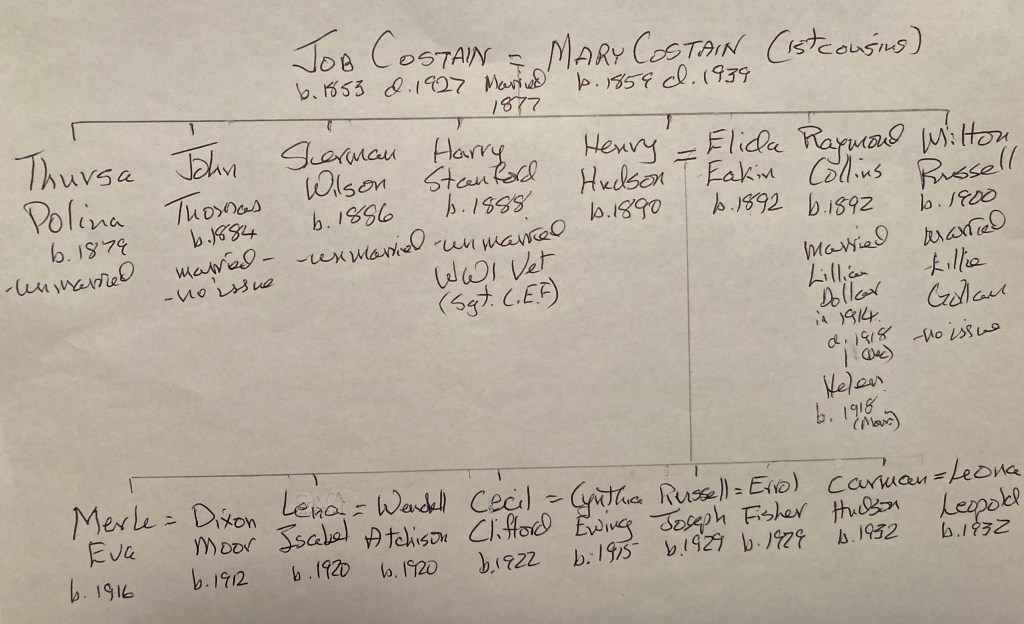 JOB COSTAIN = MARY COSTAIN (1st cousins)
b. 1853 d. 1927 Married b. 1859 d. 1939
1877
Thursa
Polina
b. 1879
-unmarried
John
Thomas
b. 1884
married -
-no issue
Sherman
Wilson
b. 1886
-unmarried
Harry
Stanford
b. 1888
-unmarried
WWI Vet
(Sgt. C.E.F)
Henry
Hudson
b. 1890
=
Elida
Eakin
b. 1892
Raymond
Collins
b. 1892
married
Lillian
Dollar
in 1914
d. 1918
(Dec)
Helen
b. 1918
Milton
Russell
b. 1900
married
Lillie
-no issue
Merle =
Eva
b. 1916
Dixon
Moor
b. 1912
Lena =
Isabel
b. 1920
Wendell
Atchison
b. 1920
Cecil =
Clifford
b. 1922
Cynthia
Ewing
b. 1915
Russell =
Joseph
b. 1929
Errol
Fisher
b. 1929
Carman =
Hudson
b. 1932
Leona
Leopold
b. 1932